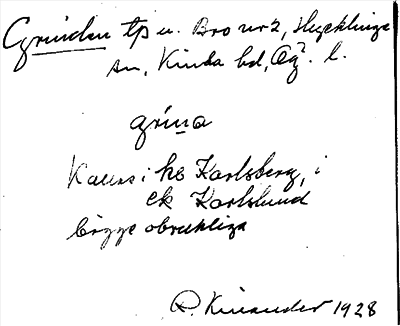 Grinden tp u. Bro nr 2, Hycklinge
sn, Kinda hd, Ög. l.
grína
Kallas i hs Karlsberg, i
ek Karlslund
bägge obrukliga
R. Kinander 1928